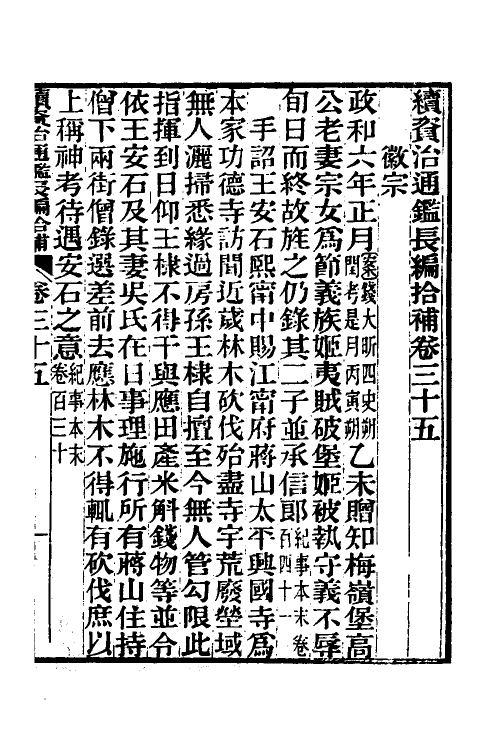 續資治通鑑長編拾補卷三十五
徽宗
政和六年正月案錢大昕四史朔閏考是月丙寅朔乙未贈知梅嶺堡高
公老妻宗女爲節義族姬夷賊破堡姬被執守義不辱
旬日而終故旌之仍錄其二子並承信郎紀事本末卷百四十一
手詔王安石熙甯中賜江甯府蔣山太平興國寺爲
本家功德寺訪聞近歲林木砍伐殆盡寺宇荒廢塋域
無人灑掃悉緣過房孫王棣自擅至今無人管勾限此
指揮到日仰王棣不得干與應田產米斛錢物等並令
依王安石及其妻吳氏在日事理施行所有蔣山住持
僧下兩街僧錄選差前去應林木不得輒有砍伐庶以
上稱神考待遇安石之意紀事本末卷百三十
續資治通鑑長編拾補
卷三十五
一